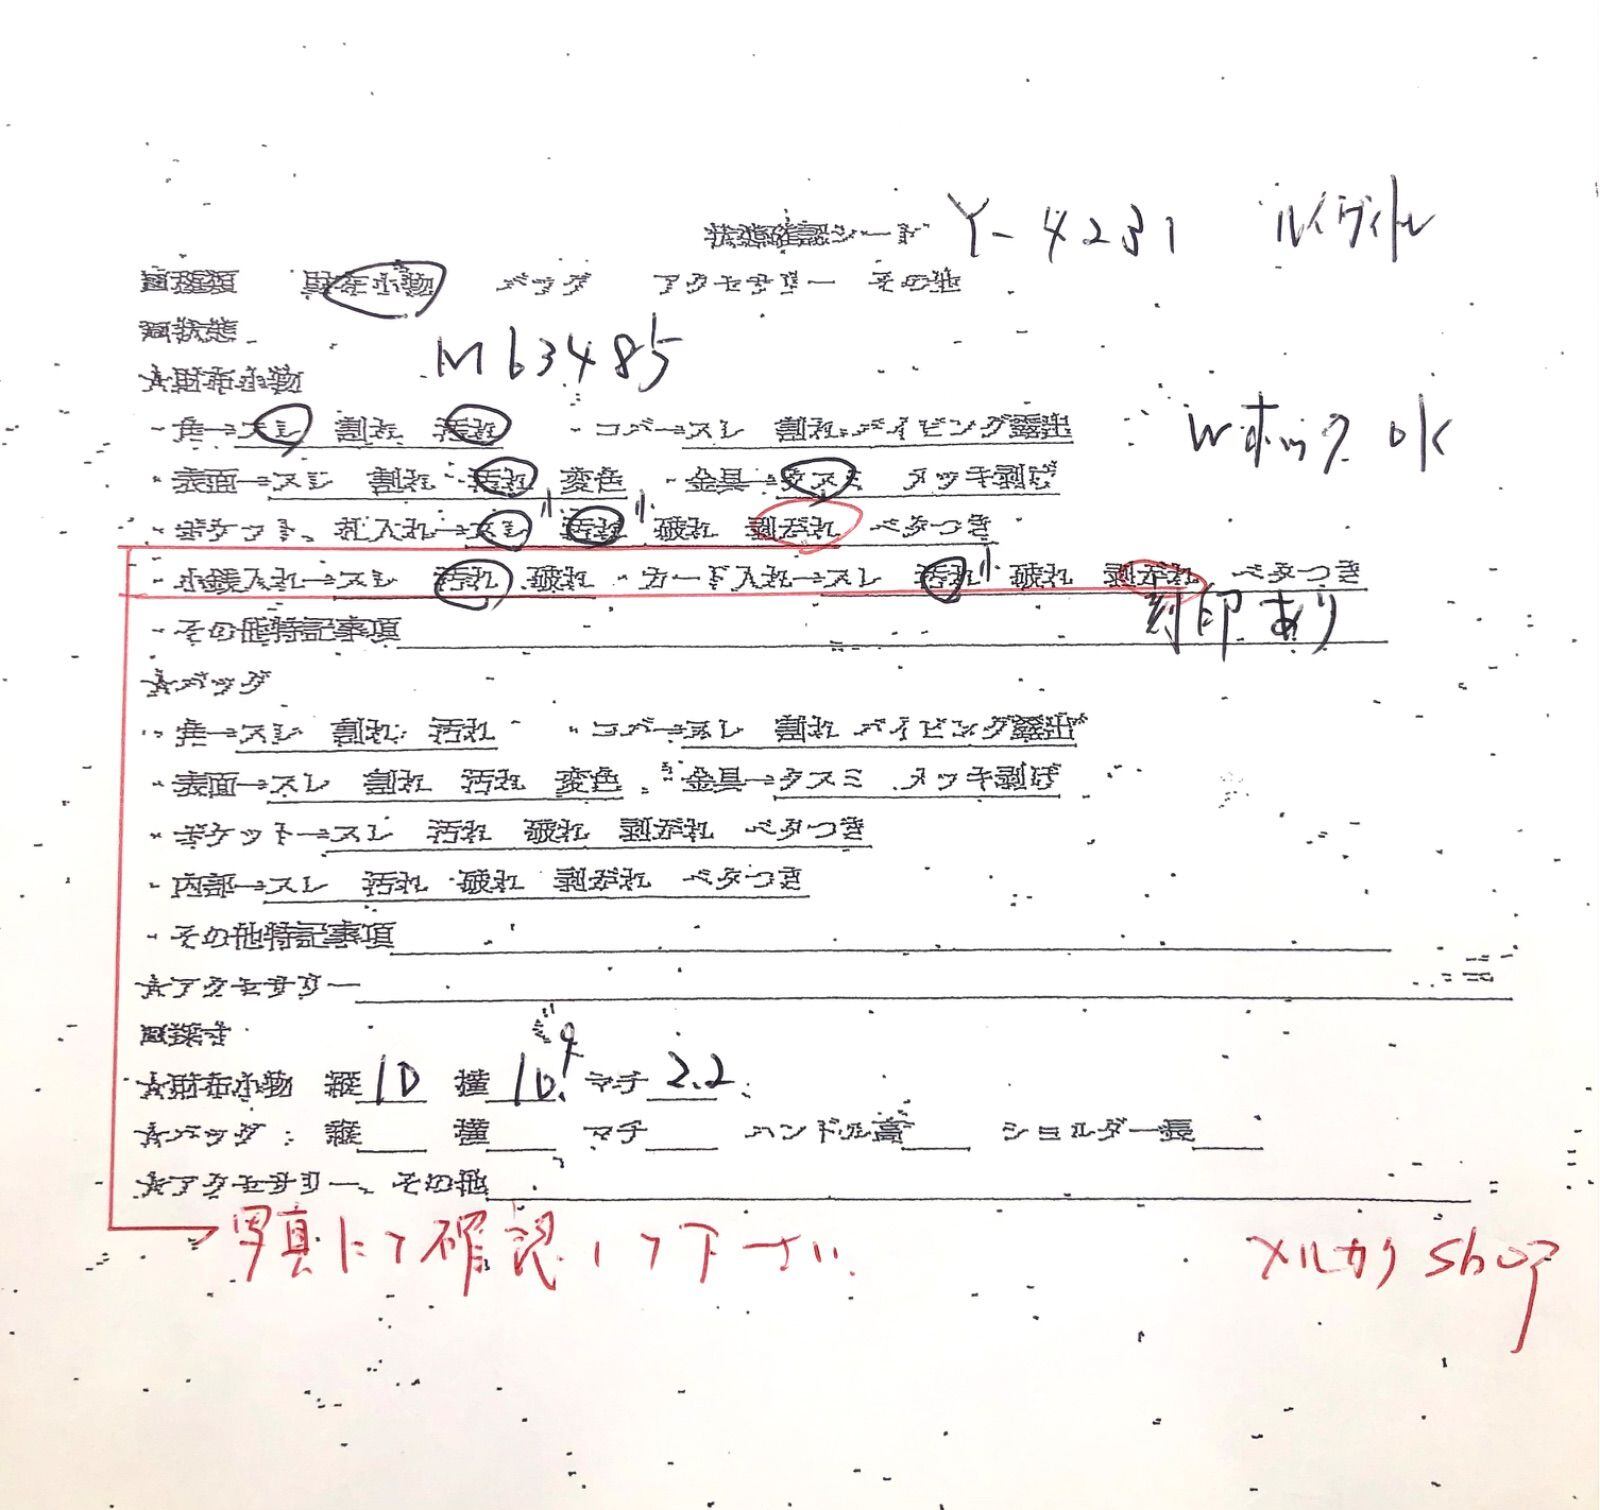 状態確認シート Y-4231 ルイヴィトン
□種類 財布小物 バッグ アクセサリー その他
□状態 M63485
★財布小物
・角→スレ 割れ 汚れ ・コバ→スレ 割れ パイピング露出 Wホック OK
・表面→スレ 割れ 汚れ 変色 ・金具→クスミ メッキ剥げ
・ポケット、札入れ→スレ 小 汚れ 小 破れ 剥がれ ベタつき
・小銭入れ→スレ 汚れ 破れ ・カード入れ→スレ 汚れ 小 破れ 剥がれ ベタつき
・その他特記事項 刻印あり
★バッグ
・角→スレ 割れ 汚れ ・コバ→スレ 割れ パイピング露出
・表面→スレ 割れ 汚れ 変色 ・金具→クスミ メッキ剥げ
・ポケット→スレ 汚れ 破れ 剥がれ ベタつき
・内部→スレ 汚れ 破れ 剥がれ ベタつき
・その他特記事項
★アクセサリー
□採寸
★財布小物 縦 10 横 10.9 マチ 2.2
★バッグ: 縦 横 マチ ハンドル高 ショルダー長
★アクセサリー、その他
写真にて確認して下さい メルカリ shop